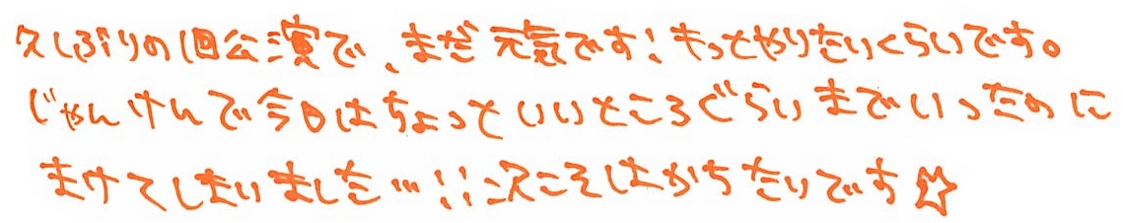 久しぶりの1回公演で、まだ元気です!もっとやりたいくらいです。
じゃんけんで今日はちょっといいところぐらいまでいったのに
まけてしまいました…!!次こそはかちたいです☆